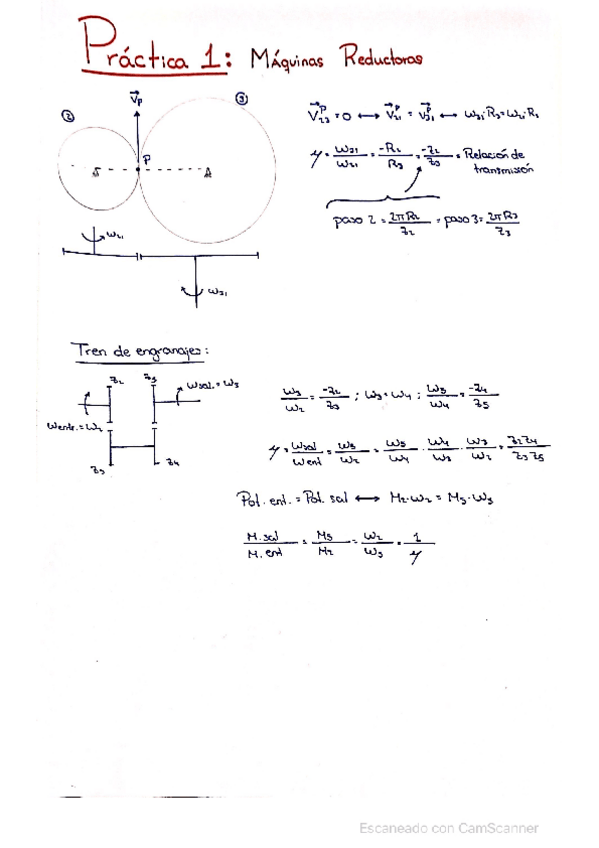 Práctica 1: Máquinas Reductoras
② V⃗p ③
P
ω21
ω31
V⃗23^P = 0 ⟷ V⃗21^P = V⃗31^P ⟷ ω31·R3=ω21·R2
μ = ω31/ω21 = -R2/R3 = -z2/z3 = Relación de transmisión
paso 2 = 2πR2/z2 = paso 3 = 2πR3/z3
Tren de engranajes:
z2 z5 ωsal. = ω5
ωentr. = ω2
z3 z4
ω3/ω2 = -z2/z3 ; ω3 = ω4 ; ω5/ω4 = -z4/z5
μ = ωsal/ωent = ω5/ω2 = ω5/ω4 · ω4/ω3 · ω3/ω2 = z2z4/z3z5
Pot. ent. = Pot. sal ⟷ M2·ω2 = M5·ω5
M. sal/M. ent = M5/M2 = ω2/ω5 = 1/μ
Escaneado con CamScanner